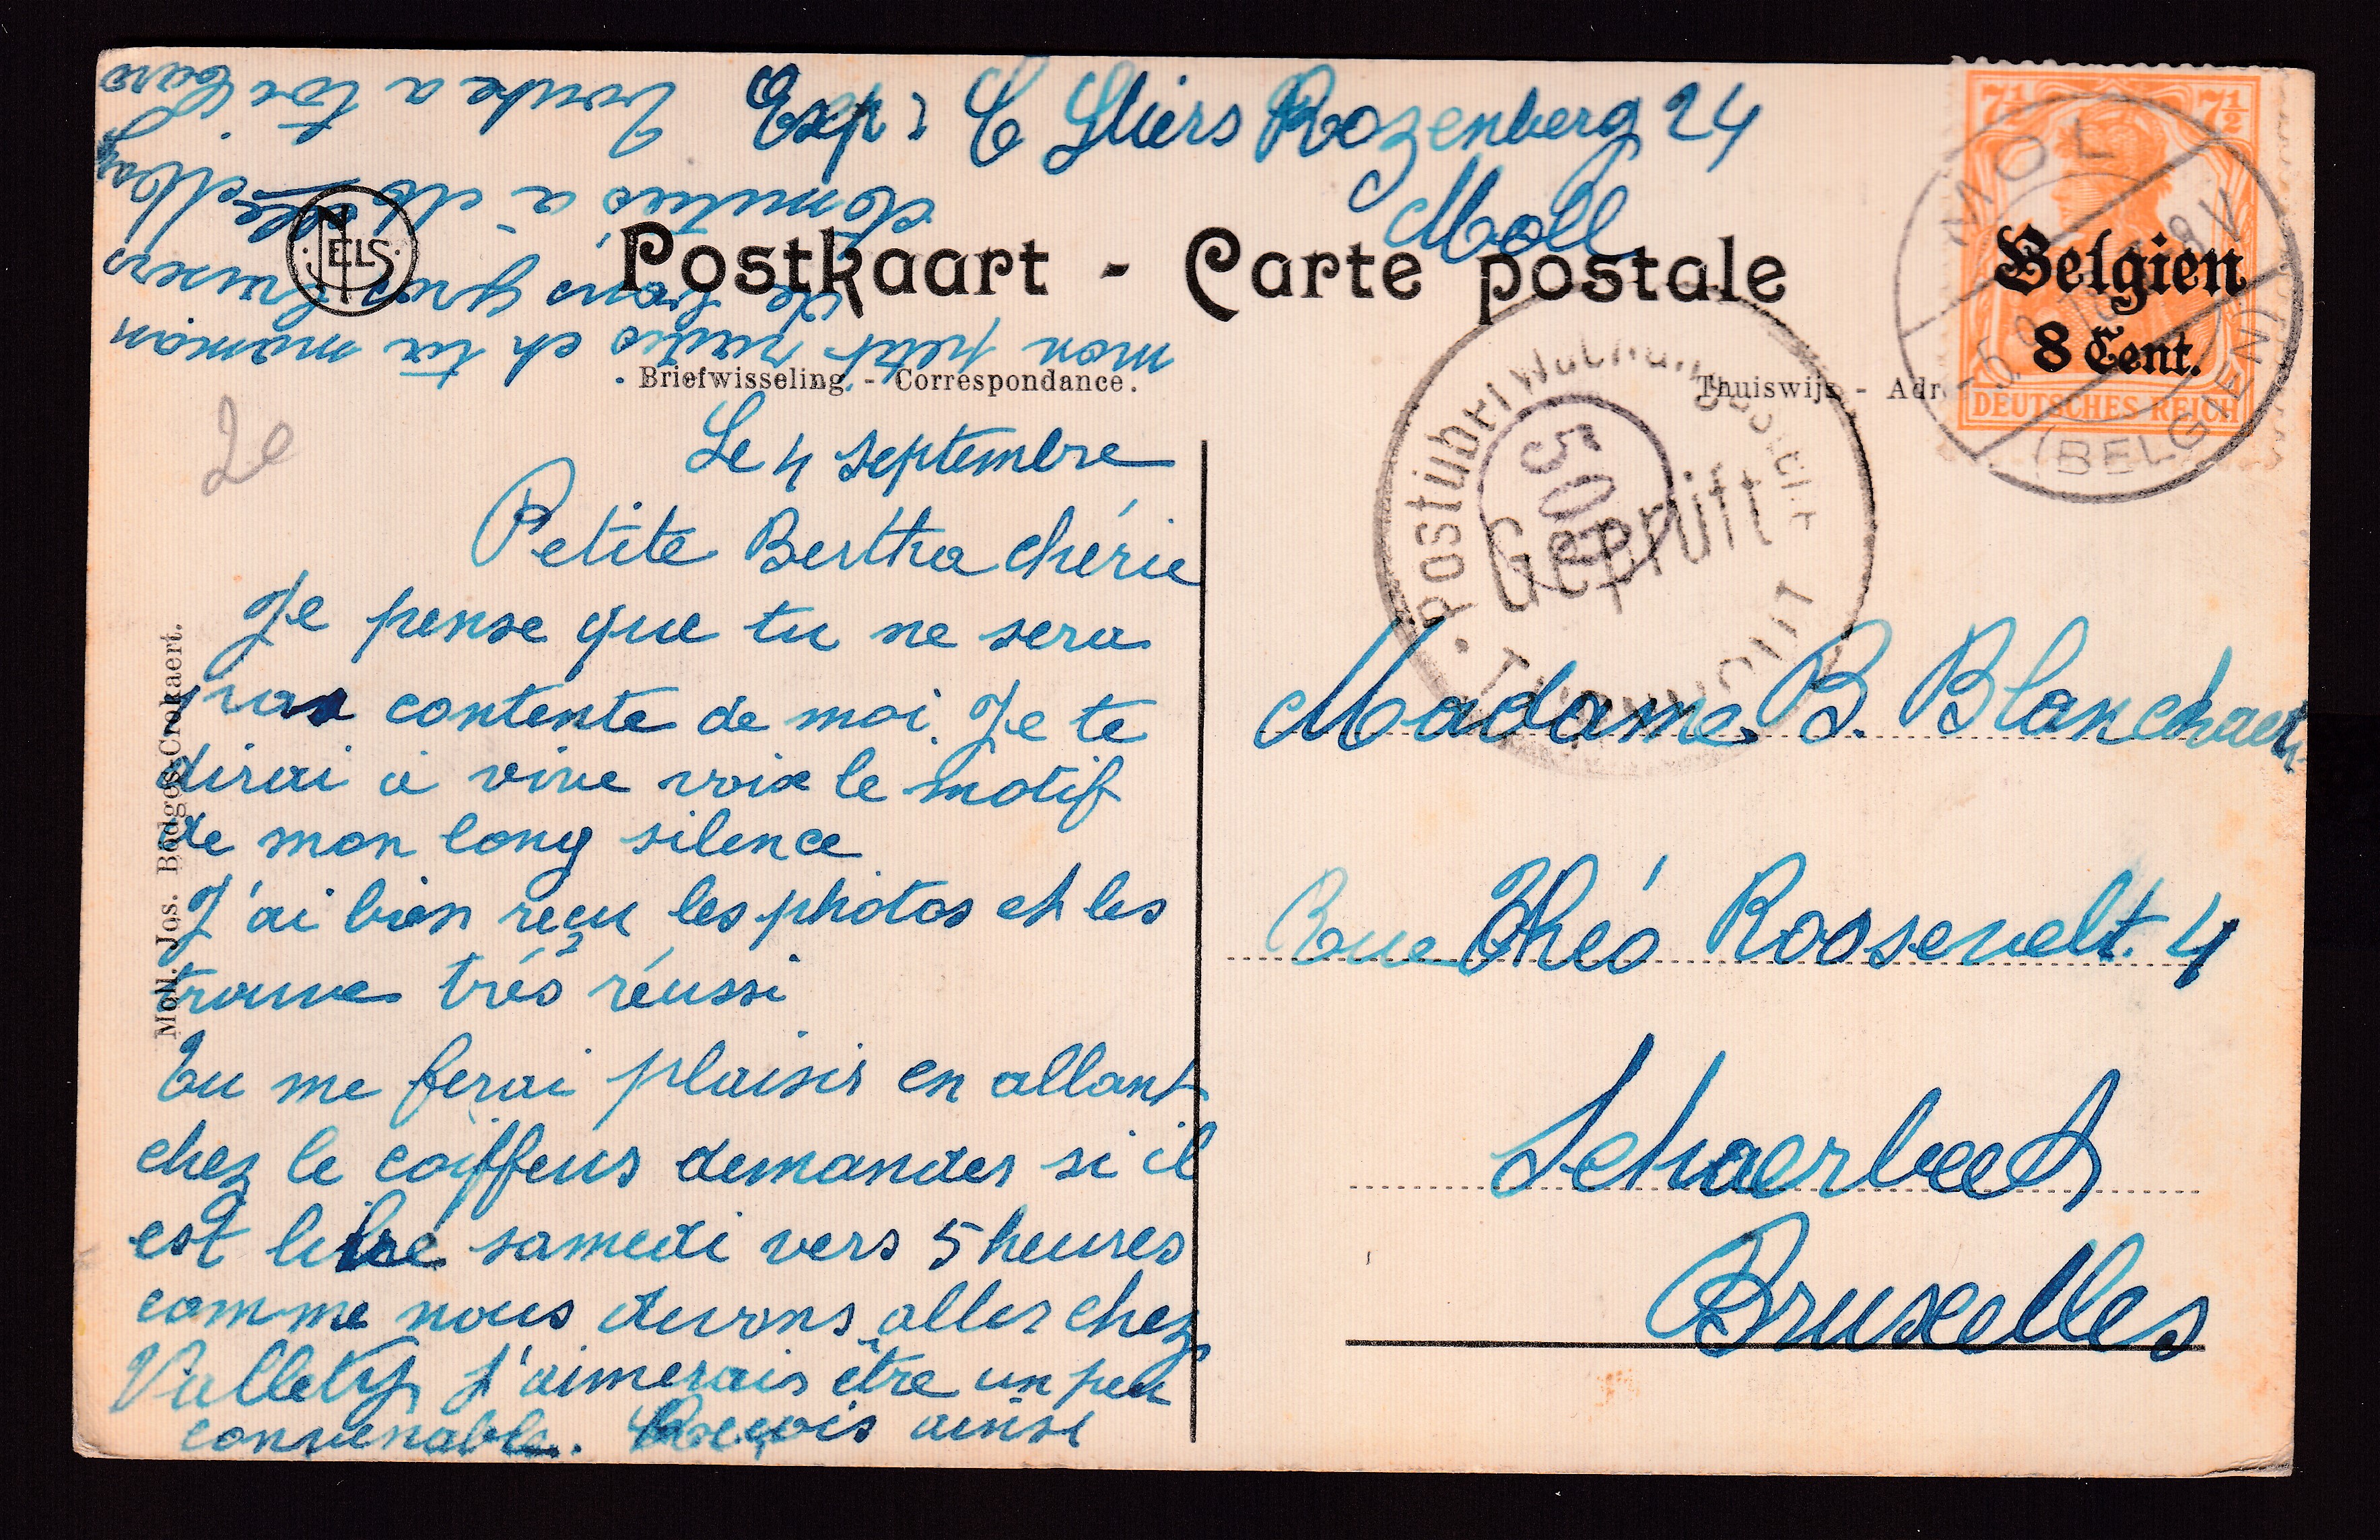 Exp : C Sliers Rozenberg 24
Moll
NELS
Postkaart - Carte postale
Briefwisseling. - Correspondance.
Thuiswijs - Adr
7½ 7½
Belgien
8 Cent.
DEUTSCHES REICH
MOL
(BELGIEN)
Postüb
Geprüft
50
20
Le 4 septembre
Petite Bertha chérie
Je pense que tu ne sera
pas contente de moi. Je te
dirai a vive voix le motif
de mon long silence
J'ai bien reçu les photos et les
trouve trés réussi
Tu me ferai plaisir en allant
chez le coiffeur demander si il
est libre samedi vers 5 heures
comme nous devons aller chez
Vallety, J'aimerais être un peu
convenable. Reçois ainsi
mon petit et ta maman
de gros baisers
à
toute a toi
Moll. Jos. Crokaert.
Madame B. Blanckaert
Rue Théo Roosevelt. 4
Schaerbeek
Bruxelles